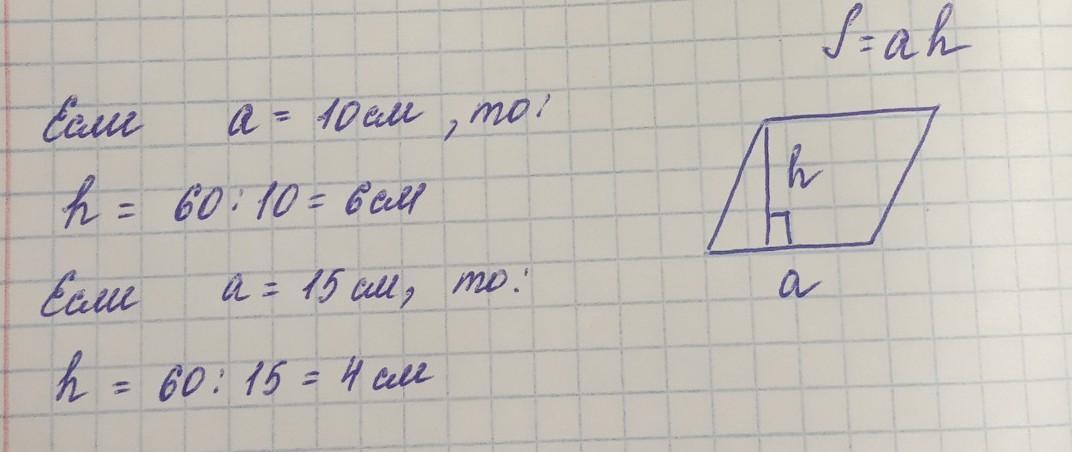 S = a h
Если a = 10 см, то:
h = 60 : 10 = 6 см
h
Если a = 15 см, то:
a
h = 60 : 15 = 4 см